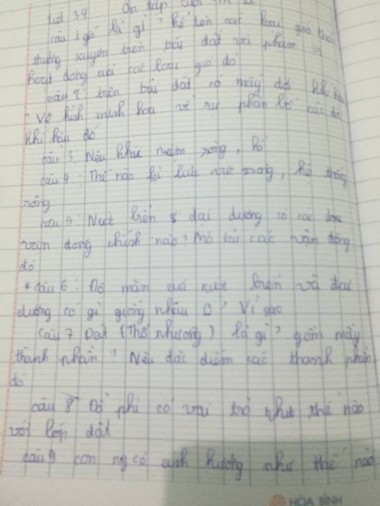 Tiết 34 Ôn tập
câu 1 gó là gì? kể tên các loại gió thổi
thường xuyên trên trái đất và phạm vi
hoạt động của các loại gió đó
câu 2: trên trái đất có mấy đới khí
Vẽ hình minh họa về sự phân bố các đới
khí hậu đó
câu 3: Nêu khái niệm sông, hồ
câu 4: Thế nào là lưu vực sông, hệ thống
sông
Nước biển & đại dương có các
vận động chính nào? Mô tả các vận động
đó
* câu 6: Độ mặn của nước biển và đại
dương có gì giống nhau o? Vì sao
câu 7 Đất (Thổ nhưỡng) là gì? gồm mấy
thành phần? Nêu đặc điểm các thành phần
đó
câu 8: Độ phì có vai trò như thế nào
với lớp đất
câu 9 con ng có ảnh hưởng như thế nào
HÒA BÌNH